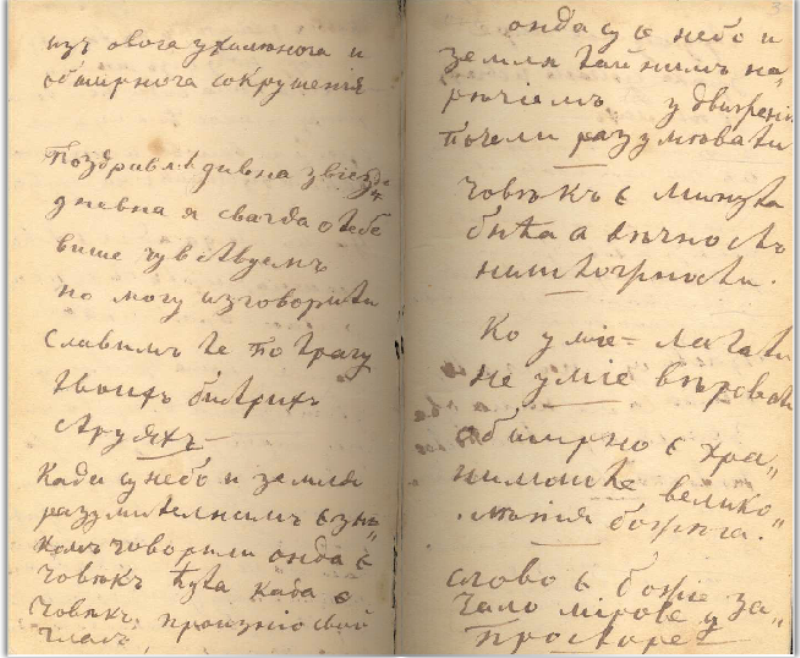 изъ овога ужаснога и
обширнога сокрушенія
Поздравлѣ дивна звіезда
дневна я свагда о тебе
више чувствуемъ
но могу изговорити
славимъ те по трагу
твоихъ бистрихъ
струяхъ
Када су небо и земля
разумителнимъ езы„
комъ говорили онда є
човѣкъ ћута када є
човѣкъ произніо свой
гласъ
3
онда су се небо и
земля тайнимъ на„
рѣчіемъ у движенію
почели разумѣвати
човѣкъ є минута
бића а вѣчность
ништожности.
Ко уміе лагати
не уміе вѣровати
обширно є хра„
нилиште велико„
лѣпія божіега.
слово є божіе за„
чало мірове у
просторе